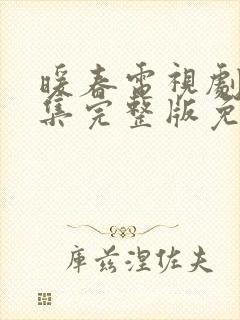 暖春電視劇
集完整版免
庫茲涅佐夫